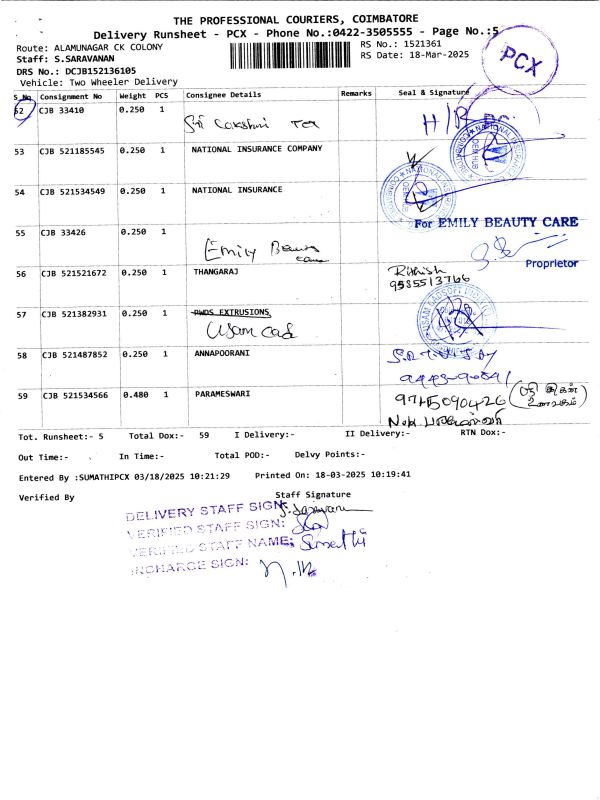 THE PROFESSIONAL COURIERS, COIMBATORE
Delivery Runsheet - PCX - Phone No.:0422-3505555 - Page No.:5
Route: ALAMUNAGAR CK COLONY
RS No.: 1521361
Staff: S.SARAVANAN
RS Date: 18-Mar-2025
PCX
DRS No.: DCJB152136105
Vehicle: Two Wheeler Delivery
S.No. Consignment No Weight PCS Consignee Details Remarks Seal & Signature
52 CJB 33410 0.250 1 Sri Lakshmi Tex H/R
53 CJB 521185545 0.250 1 NATIONAL INSURANCE COMPANY
54 CJB 521534549 0.250 1 NATIONAL INSURANCE
55 CJB 33426 0.250 1 Emily Beauty Care For EMILY BEAUTY CARE
Proprietor
56 CJB 521521672 0.250 1 THANGARAJ Rithish
9585513766
57 CJB 521382931 0.250 1 PWDS EXTRUSIONS
Usam Cad
58 CJB 521487852 0.250 1 ANNAPOORANI
59 CJB 521534566 0.480 1 PARAMESWARI 9715090426
Tot. Runsheet:- 5 Total Dox:- 59 I Delivery:- II Delivery:- RTN Dox:-
Out Time:- In Time:- Total POD:- Delvy Points:-
Entered By :SUMATHIPCX 03/18/2025 10:21:29 Printed On: 18-03-2025 10:19:41
Verified By Staff Signature
DELIVERY STAFF SIGN:
VERIFIED STAFF SIGN:
VERIFIED STAFF NAME: Sumathi
INCHARGE SIGN: